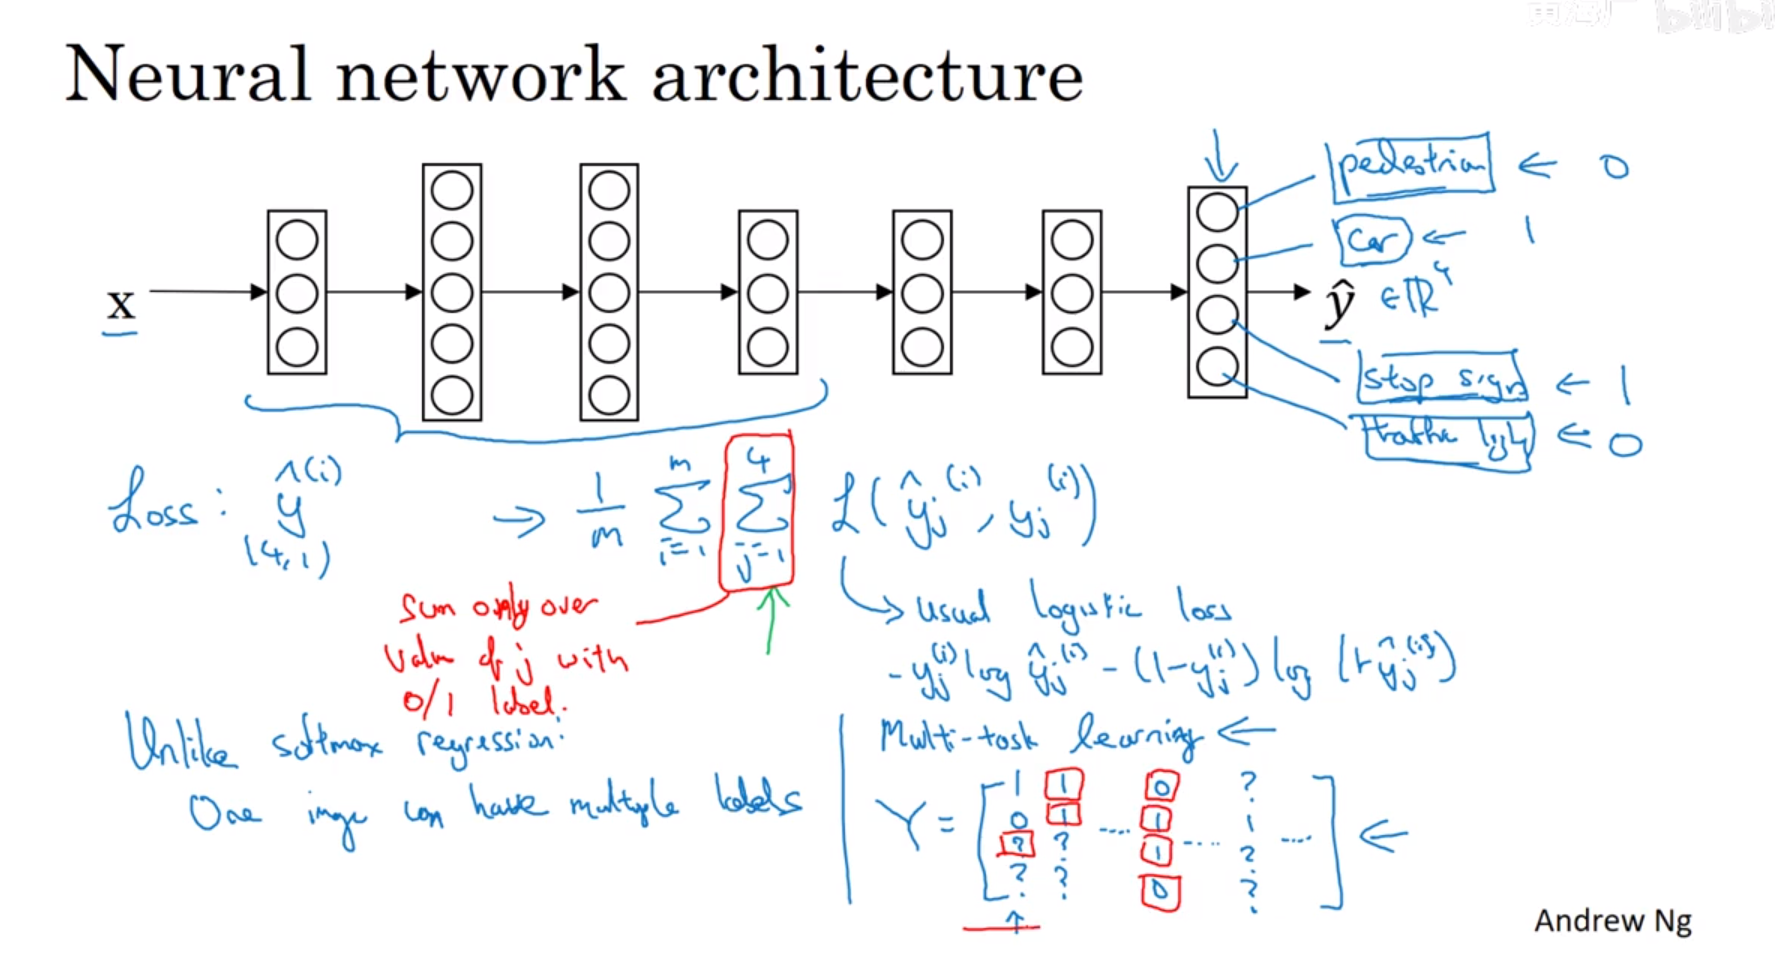 bilibili
Neural network architecture
pedestrian ← 0
car ← 1
x
ŷ ∈ ℝ⁴
stop sign ← 1
traffic light ← 0
Loss: ŷ^(i) → 1/m Σ_{i=1}^{m} Σ_{j=1}^{4} ℒ(ŷ_j^(i), y_j^(i))
(4,1)
sum only over
value of j with
0/1 label.
usual logistic loss
- y_j^(i) log ŷ_j^(i) - (1-y_j^(i)) log (1-ŷ_j^(i))
Unlike softmax regression:
One image can have multiple labels
Multi-task learning ←
Y = [ 1 1 0 ?
0 1 .... 1 1
? ? 1 .... ? .... ] ←
? ? 0 ?
Andrew Ng